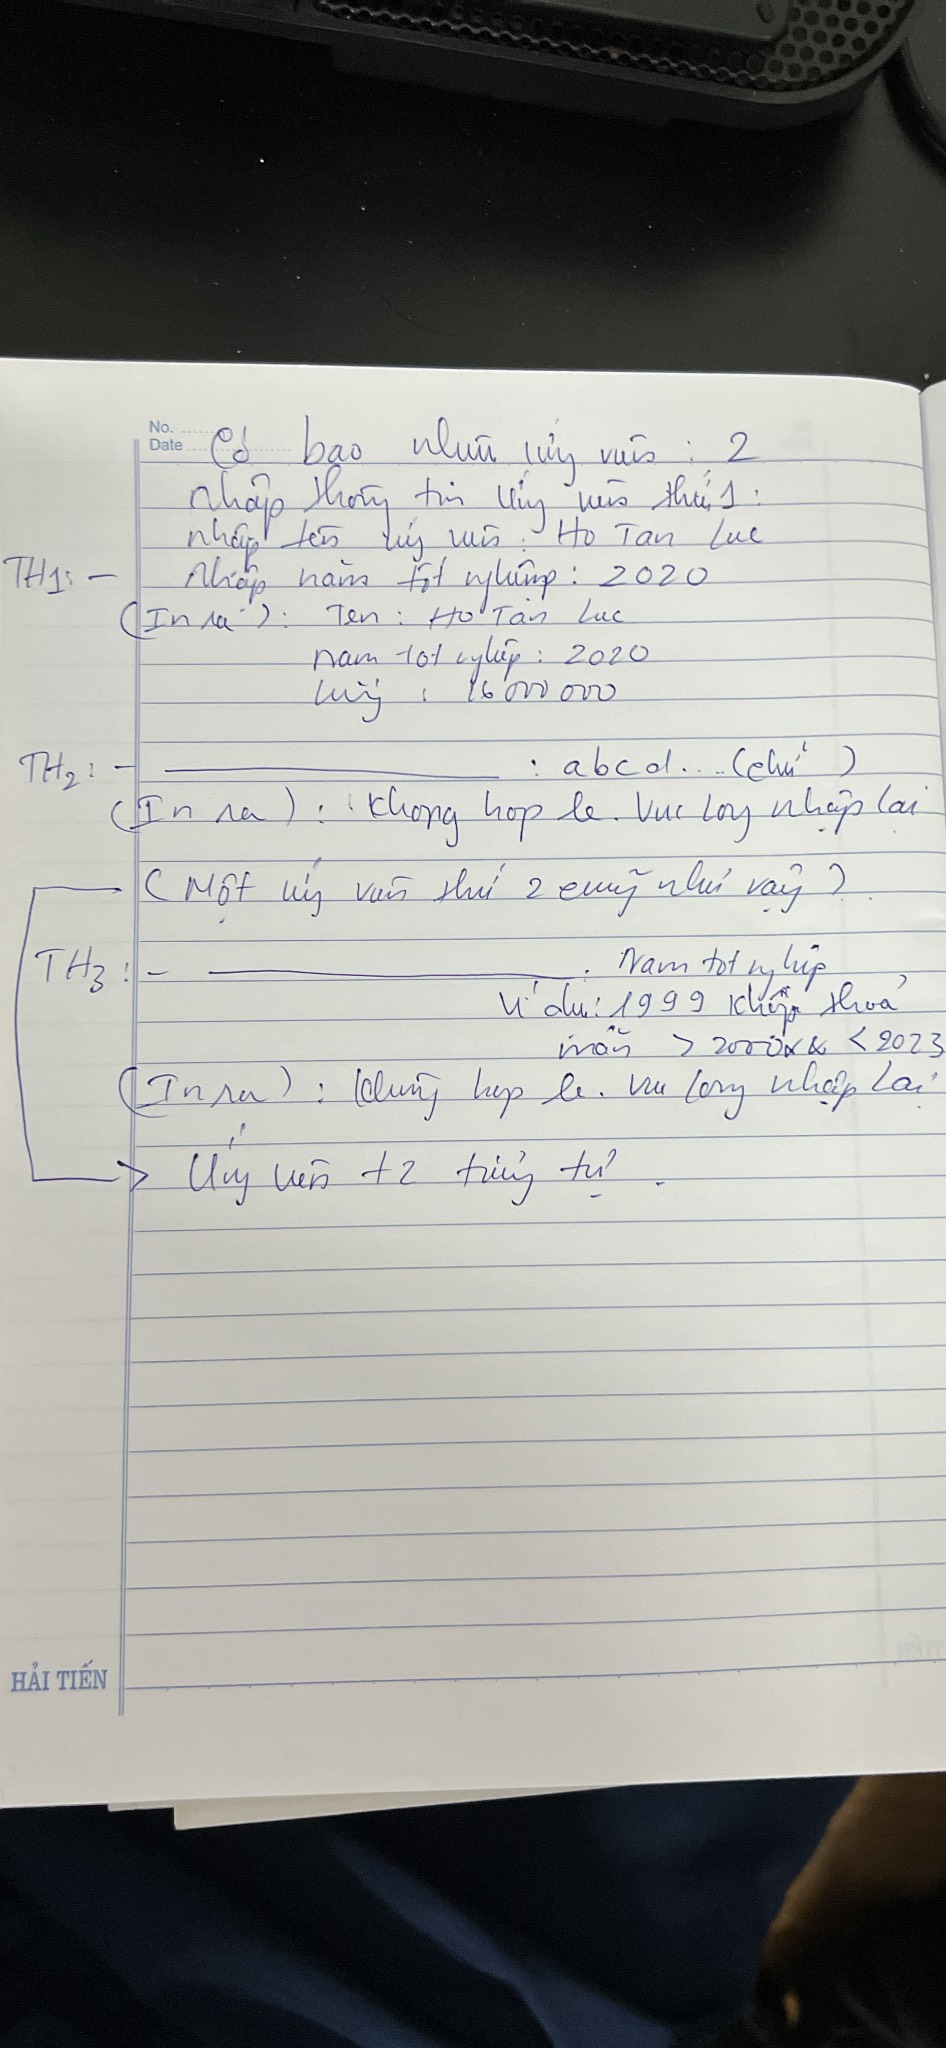 No.
Date
Có bao nhiêu ủy viên : 2
nhập thông tin ủy viên thứ 1 :
nhập tên ủy viên : Ho Tan Luc
TH1: - Nhập năm tốt nghiệp : 2020
(In ra) : Ten : Ho Tan Luc
nam tot nghiệp : 2020
: 16 000 000
TH2 : - : abcd.... (chữ)
(In ra) : Khong hop le. Vui long nhập lai
(Một ủy viên thứ 2 cũng như vậy)
TH3 : - . Nam tot nghiệp
Ví du : 1999 thoả
mãn > 2000 && < 2023
(In ra) : Không hop le. Vui long nhập lai
Ủy viên t2 tương tự .
HẢI TIẾN